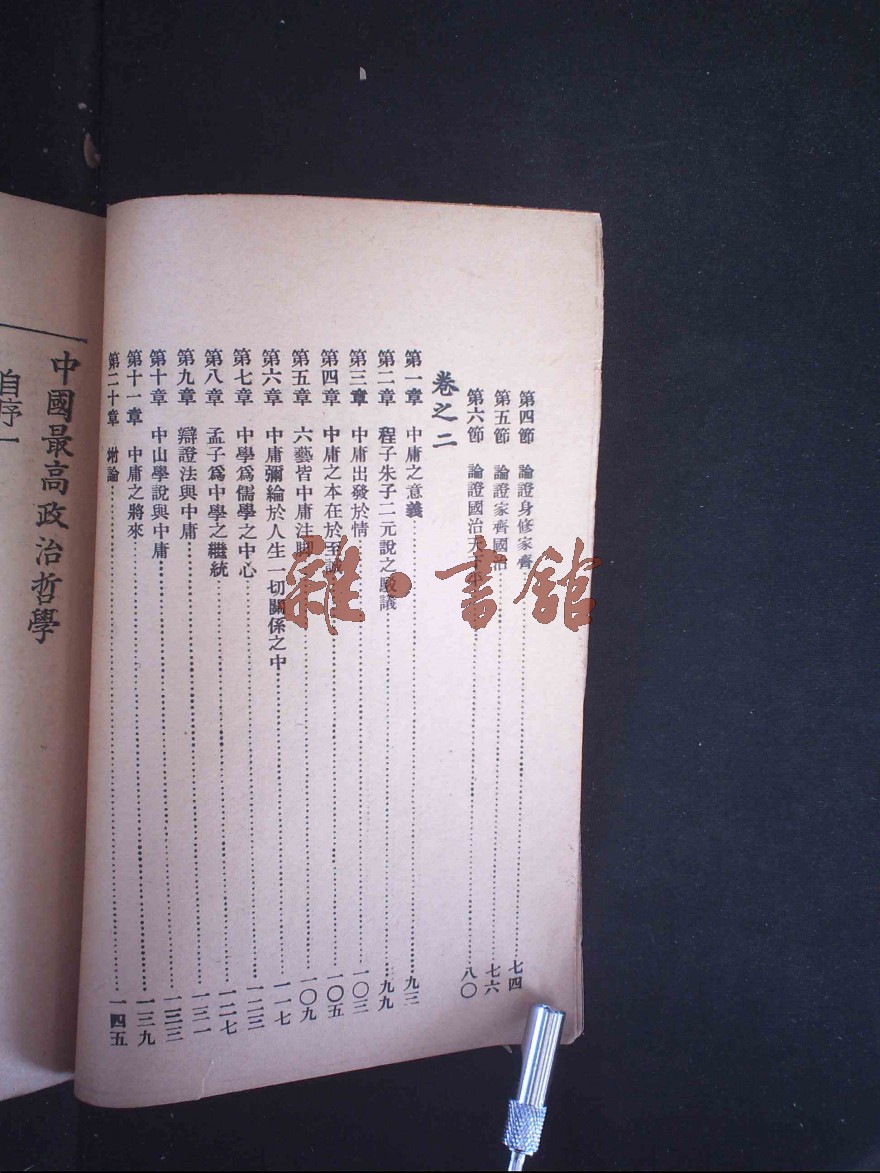 第四節　論證身修家齊……七四
第五節　論證家齊國治……七六
第六節　論證國治天下平……八〇
卷之二
第一章　中庸之意義……九三
第二章　程子朱子二元說之駁議……九九
第三章　中庸出發於情……一〇三
第四章　中庸之本在於至誠……一〇五
第五章　六藝皆中庸注脚……一〇九
第六章　中庸彌綸於人生一切關係之中……一一七
第七章　中學爲儒學之中心……一二三
第八章　孟子爲中學之繼統……一二七
第九章　辯證法與中庸……一三一
第十章　中山學說與中庸……一三三
第十一章　中庸之將來……一三九
第二十章　坿論……一四五
中國最高政治哲學
自序一
雜·書館